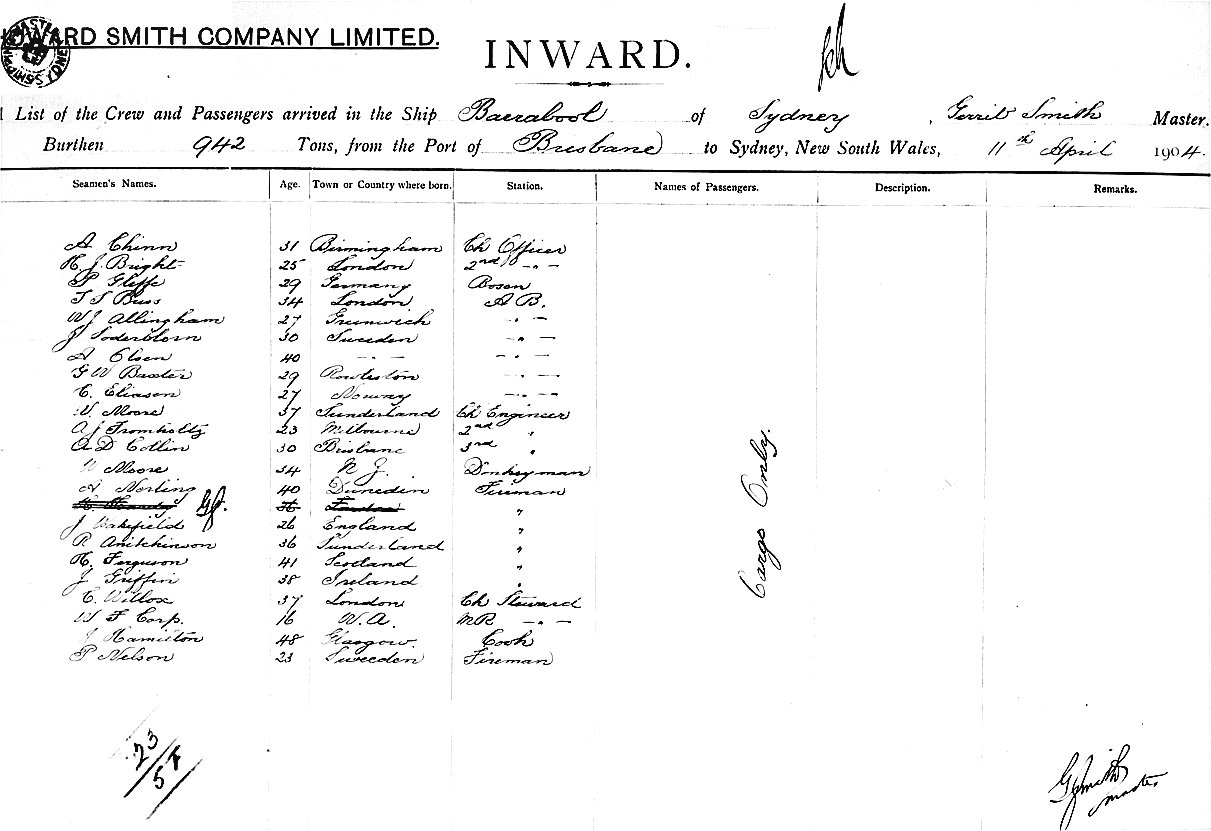 HOWARD SMITH COMPANY LIMITED.
INWARD.
List of the Crew and Passengers arrived in the Ship Barrabool of Sydney, Gerrit Smith Master.
Burthen 942 Tons, from the Port of Brisbane to Sydney, New South Wales, 11th April 1904.
Seamen's Names. Age. Town or Country where born. Station. Names of Passengers. Description. Remarks.
A Chinn 31 Birmingham Ch Officer
H. J. Bright 25 London 2nd " "
P Gleffe 29 Germany Bosen
T S Buss 34 London A B.
W J Allingham 27 Greenwich - " -
J Soderblom 30 Sweeden - " -
A Olsen 40 - " - - " -
G W Baxter 29 - " -
C. Eliason 27 Norway - " -
W. Moore 37 Sunderland Ch Engineer
A J Tromholtz 23 Melbourne 2nd "
A D Collin 30 Brisbane 3rd "
W Moore 34 N Z. Donkeyman
A Norling 40 Dunedin Fireman
J Wakefield 26 England "
R 36 Sunderland "
H. Ferguson 41 Scotland "
J Griffin 38 Ireland "
C. Willox 37 London Ch Steward
W F Corp. 16 W. A. M R - " -
J Hamilton 48 Glasgow. Cook
P Nelson 23 Sweeden Fireman
Cargo Only.
23/54
G Smith
master